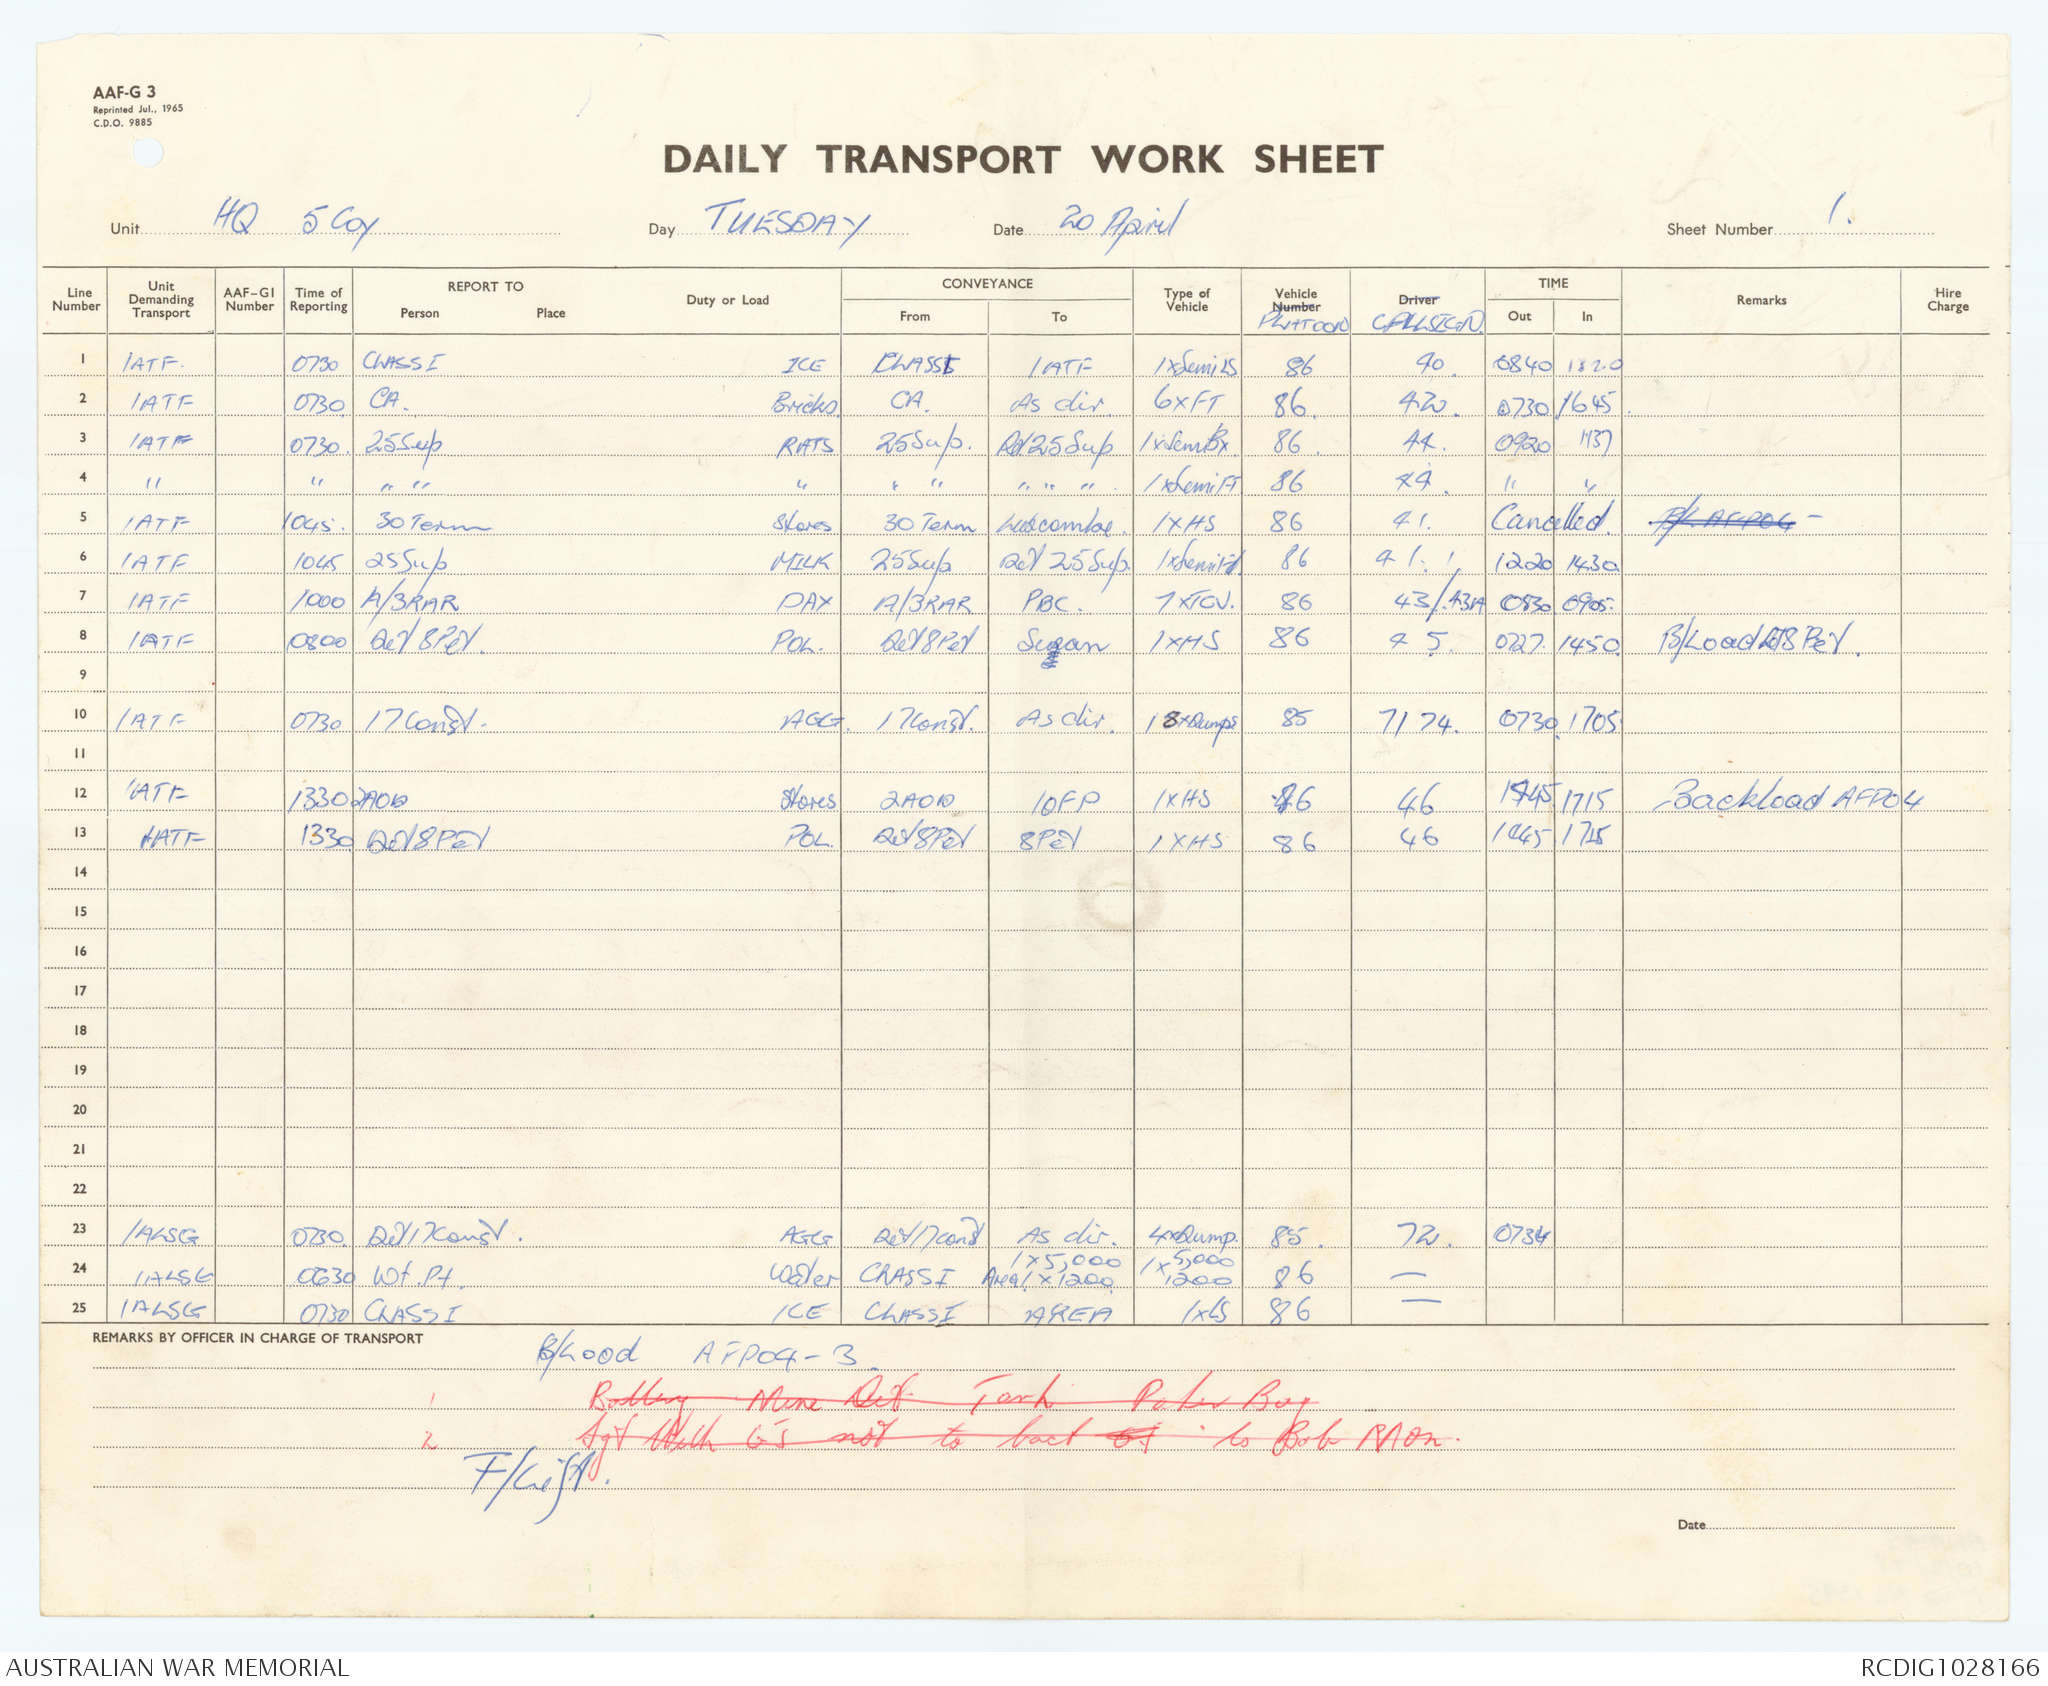 AAF-G 3
Reprinted Jul., 1965
C.D.O. 9885
DAILY TRANSPORT WORK SHEET
Unit HQ 5 Coy Day TUESDAY Date 20 April Sheet Number 1.
Line Number Unit Demanding Transport AAF-G1 Number Time of Reporting REPORT TO Person Place Duty or Load CONVEYANCE From To Type of Vehicle Vehicle Number PLATOON Driver CALLSIGN. TIME Out In Remarks Hire Charge
1 1ATF. 0730 CLASS I ICE CLASS I 1ATF 1xSemi LS 86 40. 0840 1320
2 1ATF 0730 CA. Bricks CA. As dir. 6xFT 86. 42. 0730 1645.
3 1ATF 0730. 25Sup RATS 25Sup. Det 25Sup 1xSemiBx. 86. 44. 0920 1437
4 " " " " " " " " " " 1xSemiFT 86 44. " "
5 1ATF 1045. 30 Term Stores 30 Term Luscombe. 1xHS 86 41. Cancelled. B/L AFPO4 -
6 1ATF 1045 25Sup MILK 25Sup Det 25Sup. 1xSemiFT. 86 41. 1220 1430.
7 1ATF 1000 A/3RAR PAX A/3RAR PBC. 7xTCV. 86 43/43A 0830 0905.
8 1ATF 0800 Det 8Pet. POL. Det 8Pet Sugan 1xHS 86 45. 0727. 1450. B/Load Det 8 Pet.
9
10 1ATF 0730 17Const. AGG. 17Const. As dir. 18xDumps 85 71 74. 0730. 1705
11
12 1ATF 1330 2AOD Stores 2AOD 1OFP 1xHS 86 46 1445 1715 Backload AFPO4
13 1ATF 1330 Det 8Pet POL. Det 8Pet 8Pet 1xHS 86 46 1445 1715
14
15
16
17
18
19
20
21
22
23 1ALSG 0730. Det 17Const. AGG Det 17Const As dir. 4xDump. 85. 72. 0734
24 1ALSG 0630 Wt. Pt. Water CLASS I Area 1x5,000 1x1200 1x5,000 1200 86 —
25 1ALSG 0730 CLASS I ICE CLASS I AREA 1xLS 86 —
REMARKS BY OFFICER IN CHARGE OF TRANSPORT
B/Load AFPO4-3.
1 Det.
2 Sgt not to to Bob
F/Lift.
Date
AUSTRALIAN WAR MEMORIAL RCDIG1028166